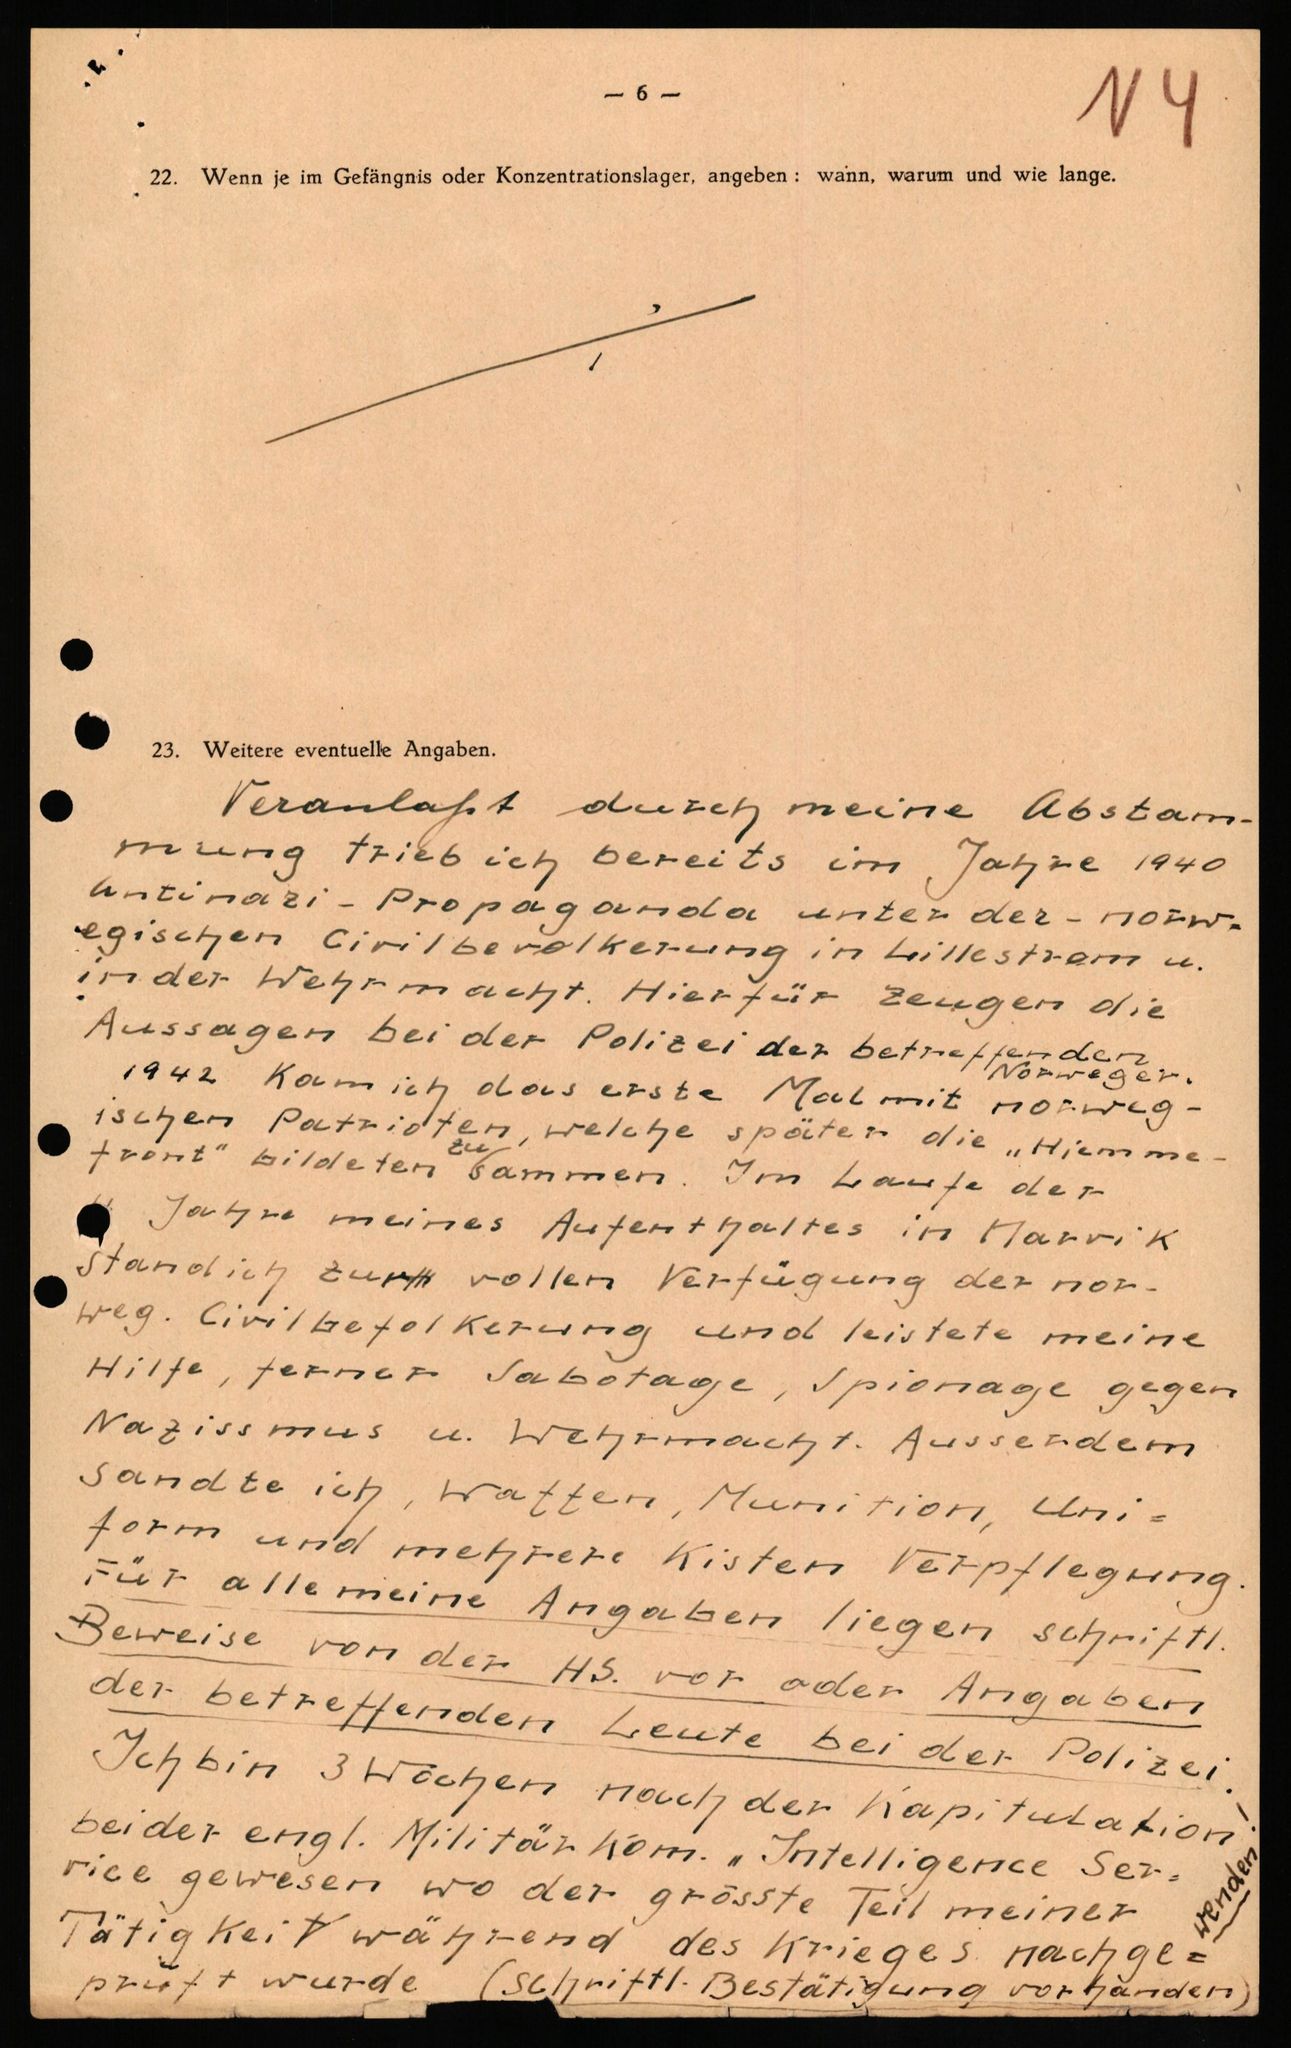 — 6 —
N 4
22. Wenn je im Gefängnis oder Konzentrationslager, angeben: wann, warum und wie lange.
23. Weitere eventuelle Angaben.
Veranlaßt durch meine Abstam-
mung trieb ich bereits im Jahre 1940
Antinazi - Propaganda unter der - norw-
egischen Civilbevolkerung in Lillestrøm u.
in der Wehrmacht. Hierfür zeugen die
Aussagen bei der Polizei der betreffenden
Norweger.
1942 kam ich das erste Mal mit norweg-
ischen Patrioten, welche später die „Hjemme-
front" bildeten zusammen. Im Laufe der
Jahre meines Aufenthaltes in Narvik
stand ich zur vollen Verfügung der nor-
weg. Civilbefolkerung und leistete meine
Hilfe, ferner Sabotage, Spionage gegen
Nazissmus u. Wehrmacht. Ausserdem
sandte ich, Waffen, Munition, Uni=
form und mehrere Kisten Verpflegung.
Für alle meine Angaben liegen schriftl.
Beweise von der HS. vor oder Angaben
der betreffenden Leute bei der Polizei.
Ich bin 3 Wochen nach der Kapitulation
bei der engl. Militär Kom. „Intelligence Ser=
vice gewesen wo der grösste Teil meiner
Tätigkeit während des Krieges nachge=
prüft wurde (Schriftl. Bestätigung vorhanden)
wenden!